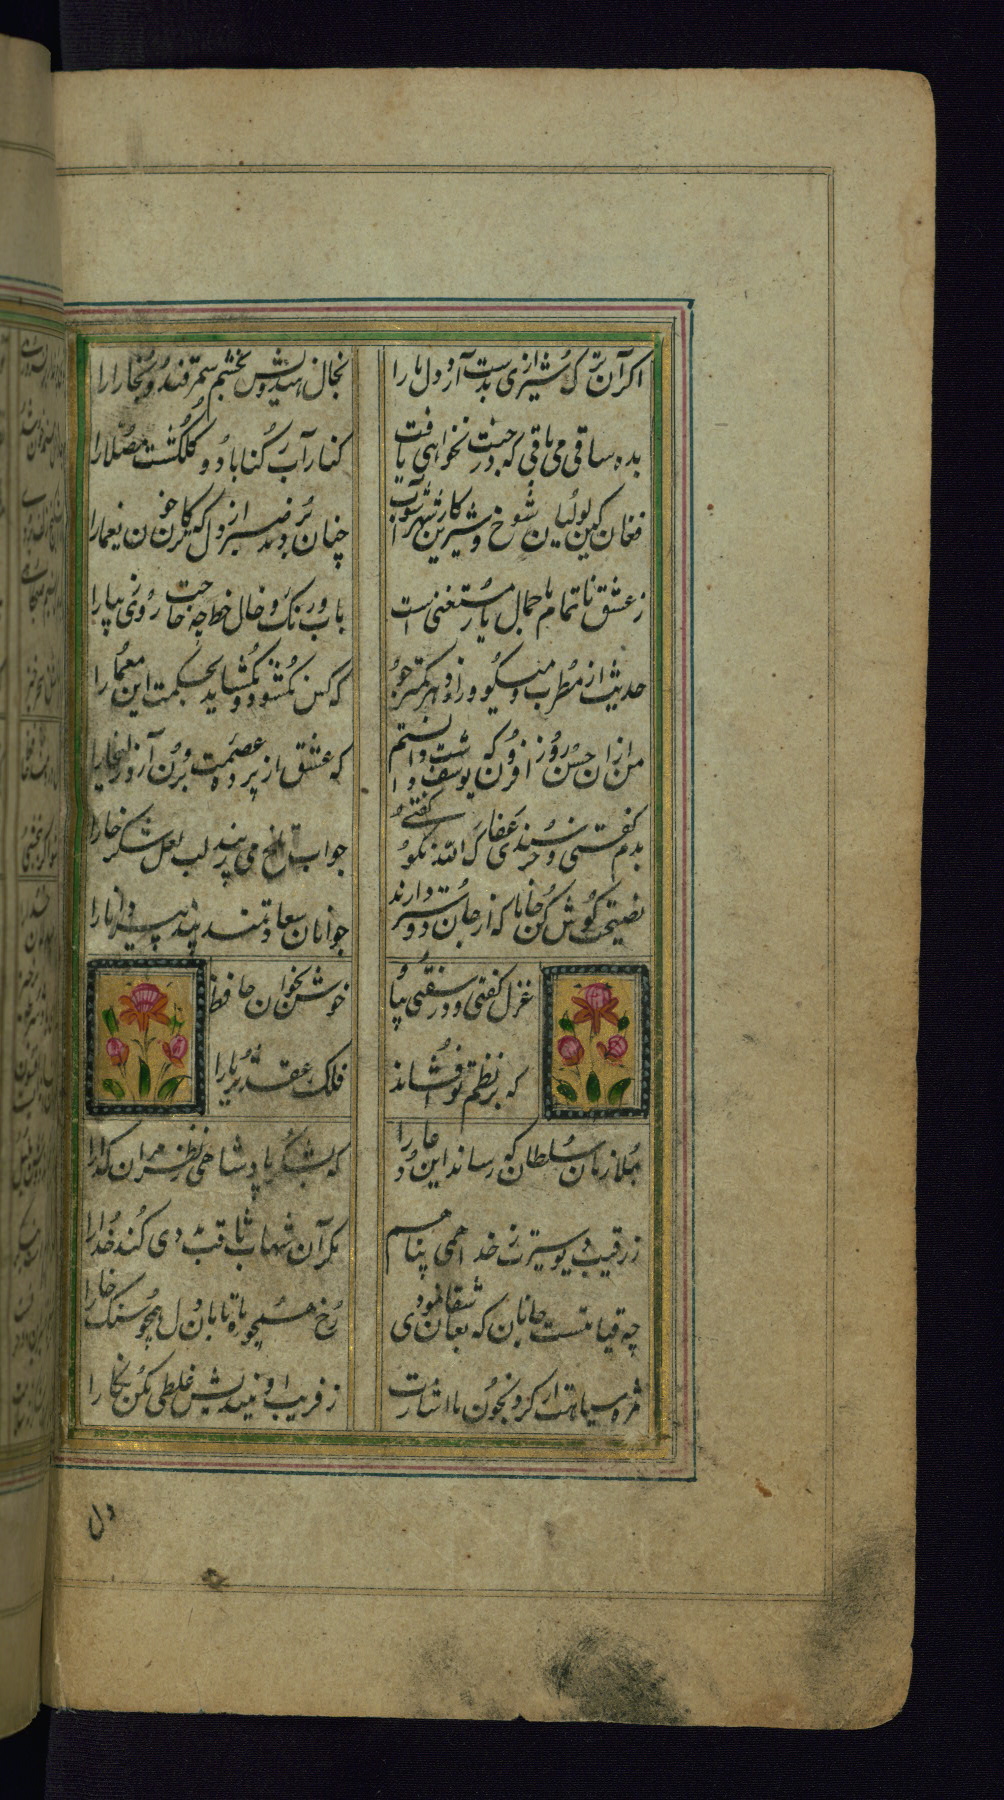 اگر آن ترک شیرازی بدست آرد دل ما را
بخال هندویش بخشم سمرقند و بخارا را
بده ساقی می باقی که در جنت نخواهی یافت
کنار آب رکناباد و گلگشت مصلا را
فغان کین لولیان شوخ و شیرین کار شهر آشوب
چنان بردند صبر از دل که ترکان خوان یغما را
ز عشق ناتمام ما جمال یار مستغنی است
بآب و رنگ و خال و خط چه حاجت روی زیبا را
حدیث از مطرب و می گو و راز دهر کمتر جو
که کس نگشود و نگشاید بحکمت این معما را
من از آن حسن روز افزون که یوسف داشت دانستم
که عشق از پرده عصمت برون آرد زلیخا را
بدم گفتی و خرسندم عفاک الله نکو گفتی
جواب تلخ می زیبد لب لعل شکر خا را
نصیحت گوش کن جانا که از جان دوستر دارند
جوانان سعادتمند پند پیر دانا را
غزل گفتی و در سفتی بیا و
خوش بخوان حافظ
که بر نظم تو افشاند
فلک عقد ثریا را
بملازمان سلطان که رساند این دعا را
که بشکر پادشاهی ز نظر مران گدا را
ز رقیب دیو سیرت بخدا همی پناهم
مگر آن شهاب ثاقب مددی کند خدا را
چه قیامتست جانان که بعاشقان نمودی
رخ همچو ماه تابان دل همچو سنگ خارا
مژه سیاهت ار کرد بخون ما اشارت
ز فریب او بیندیش و غلط مکن نگارا
دل